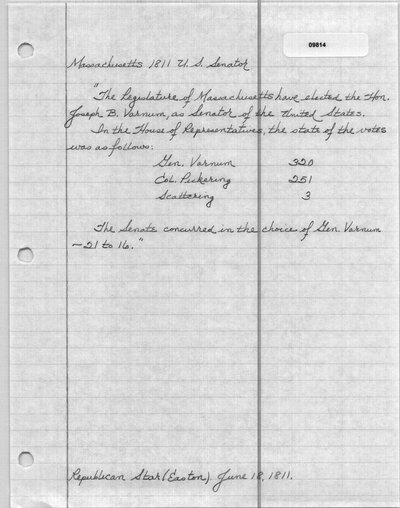 09814
Massachusetts 1811 U.S. Senator
"The Legislature of Massachusetts have elected the Hon.
Joseph B. Varnum, as Senator of the United States.
In the House of Representatives, the state of the votes
was as follows:
Gen. Varnum 320
Col. Pickering 251
Scattering 3
The Senate concurred in the choice of Gen. Varnum
— 21 to 16."
Republican Star (Easton). June 18, 1811.